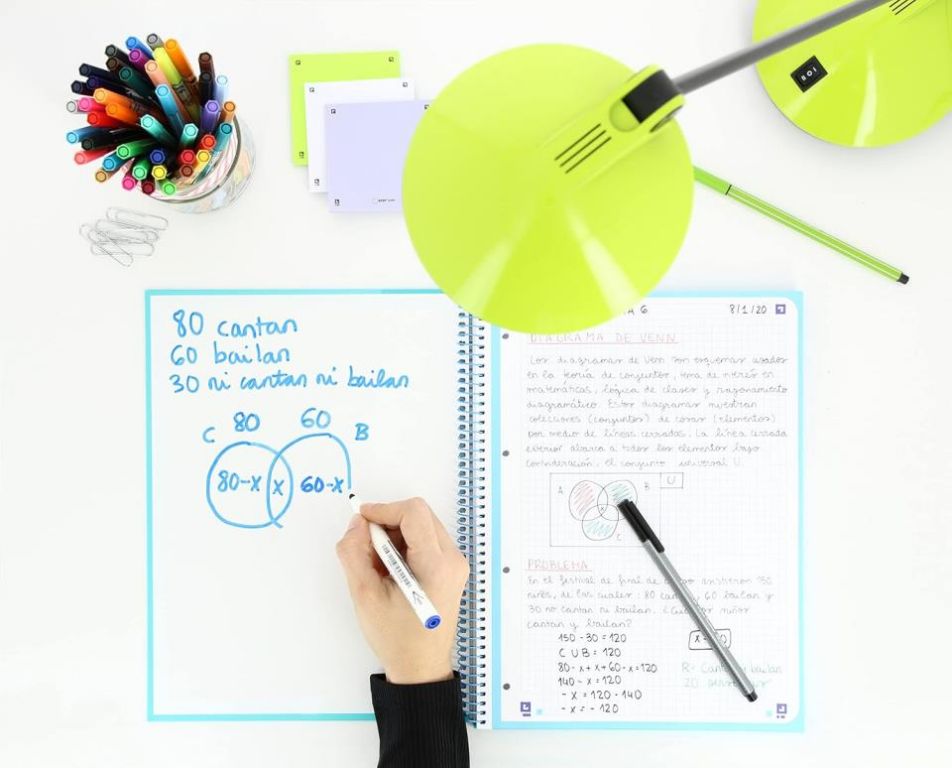 80 cantan
60 bailan
30 ni cantan ni bailan
80 60
C B
80-x x 60-x
A 6 8/1/20
DIAGRAMA DE VENN
Los diagramas de Venn son esquemas usados
en la teoría de conjuntos, tema de interés en
matemáticas, lógica de clases y razonamiento
diagramático. Estos diagramas muestran
colecciones (conjuntos) de cosas (elementos)
por medio de líneas cerradas. La línea cerrada
exterior abarca a todos los elementos bajo
consideración, el conjunto universal U.
U
A B
C
PROBLEMA
En el festival de final de asistieron 150
niños, de los cuales: 80 can 60 bailan y
30 no cantan ni bailan. niños
cantan y bailan?
150 - 30 = 120
C U B = 120
80 - x + x + 60 - x = 120
140 - x = 120
- x = 120 - 140
- x = - 120
R= Cantan y bailan
20